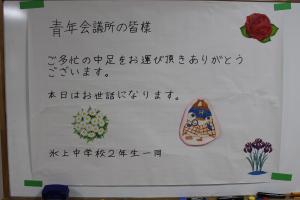 青年会議所の皆様
ご多忙の中足をお運び頂きありがとう
ございます。
本日はお世話になります。
氷上中学校2年生一同